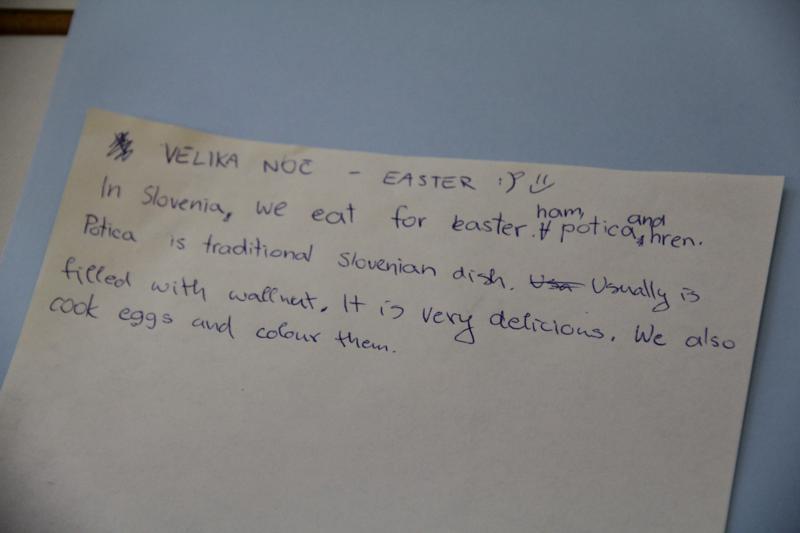 VELIKA NOČ - EASTER :P :)
In Slovenia, we eat for easter ham, potica, and hren.
Potica is traditional Slovenian dish. Usually is
filled with wallnut. It is very delicious. We also
cook eggs and colour them.